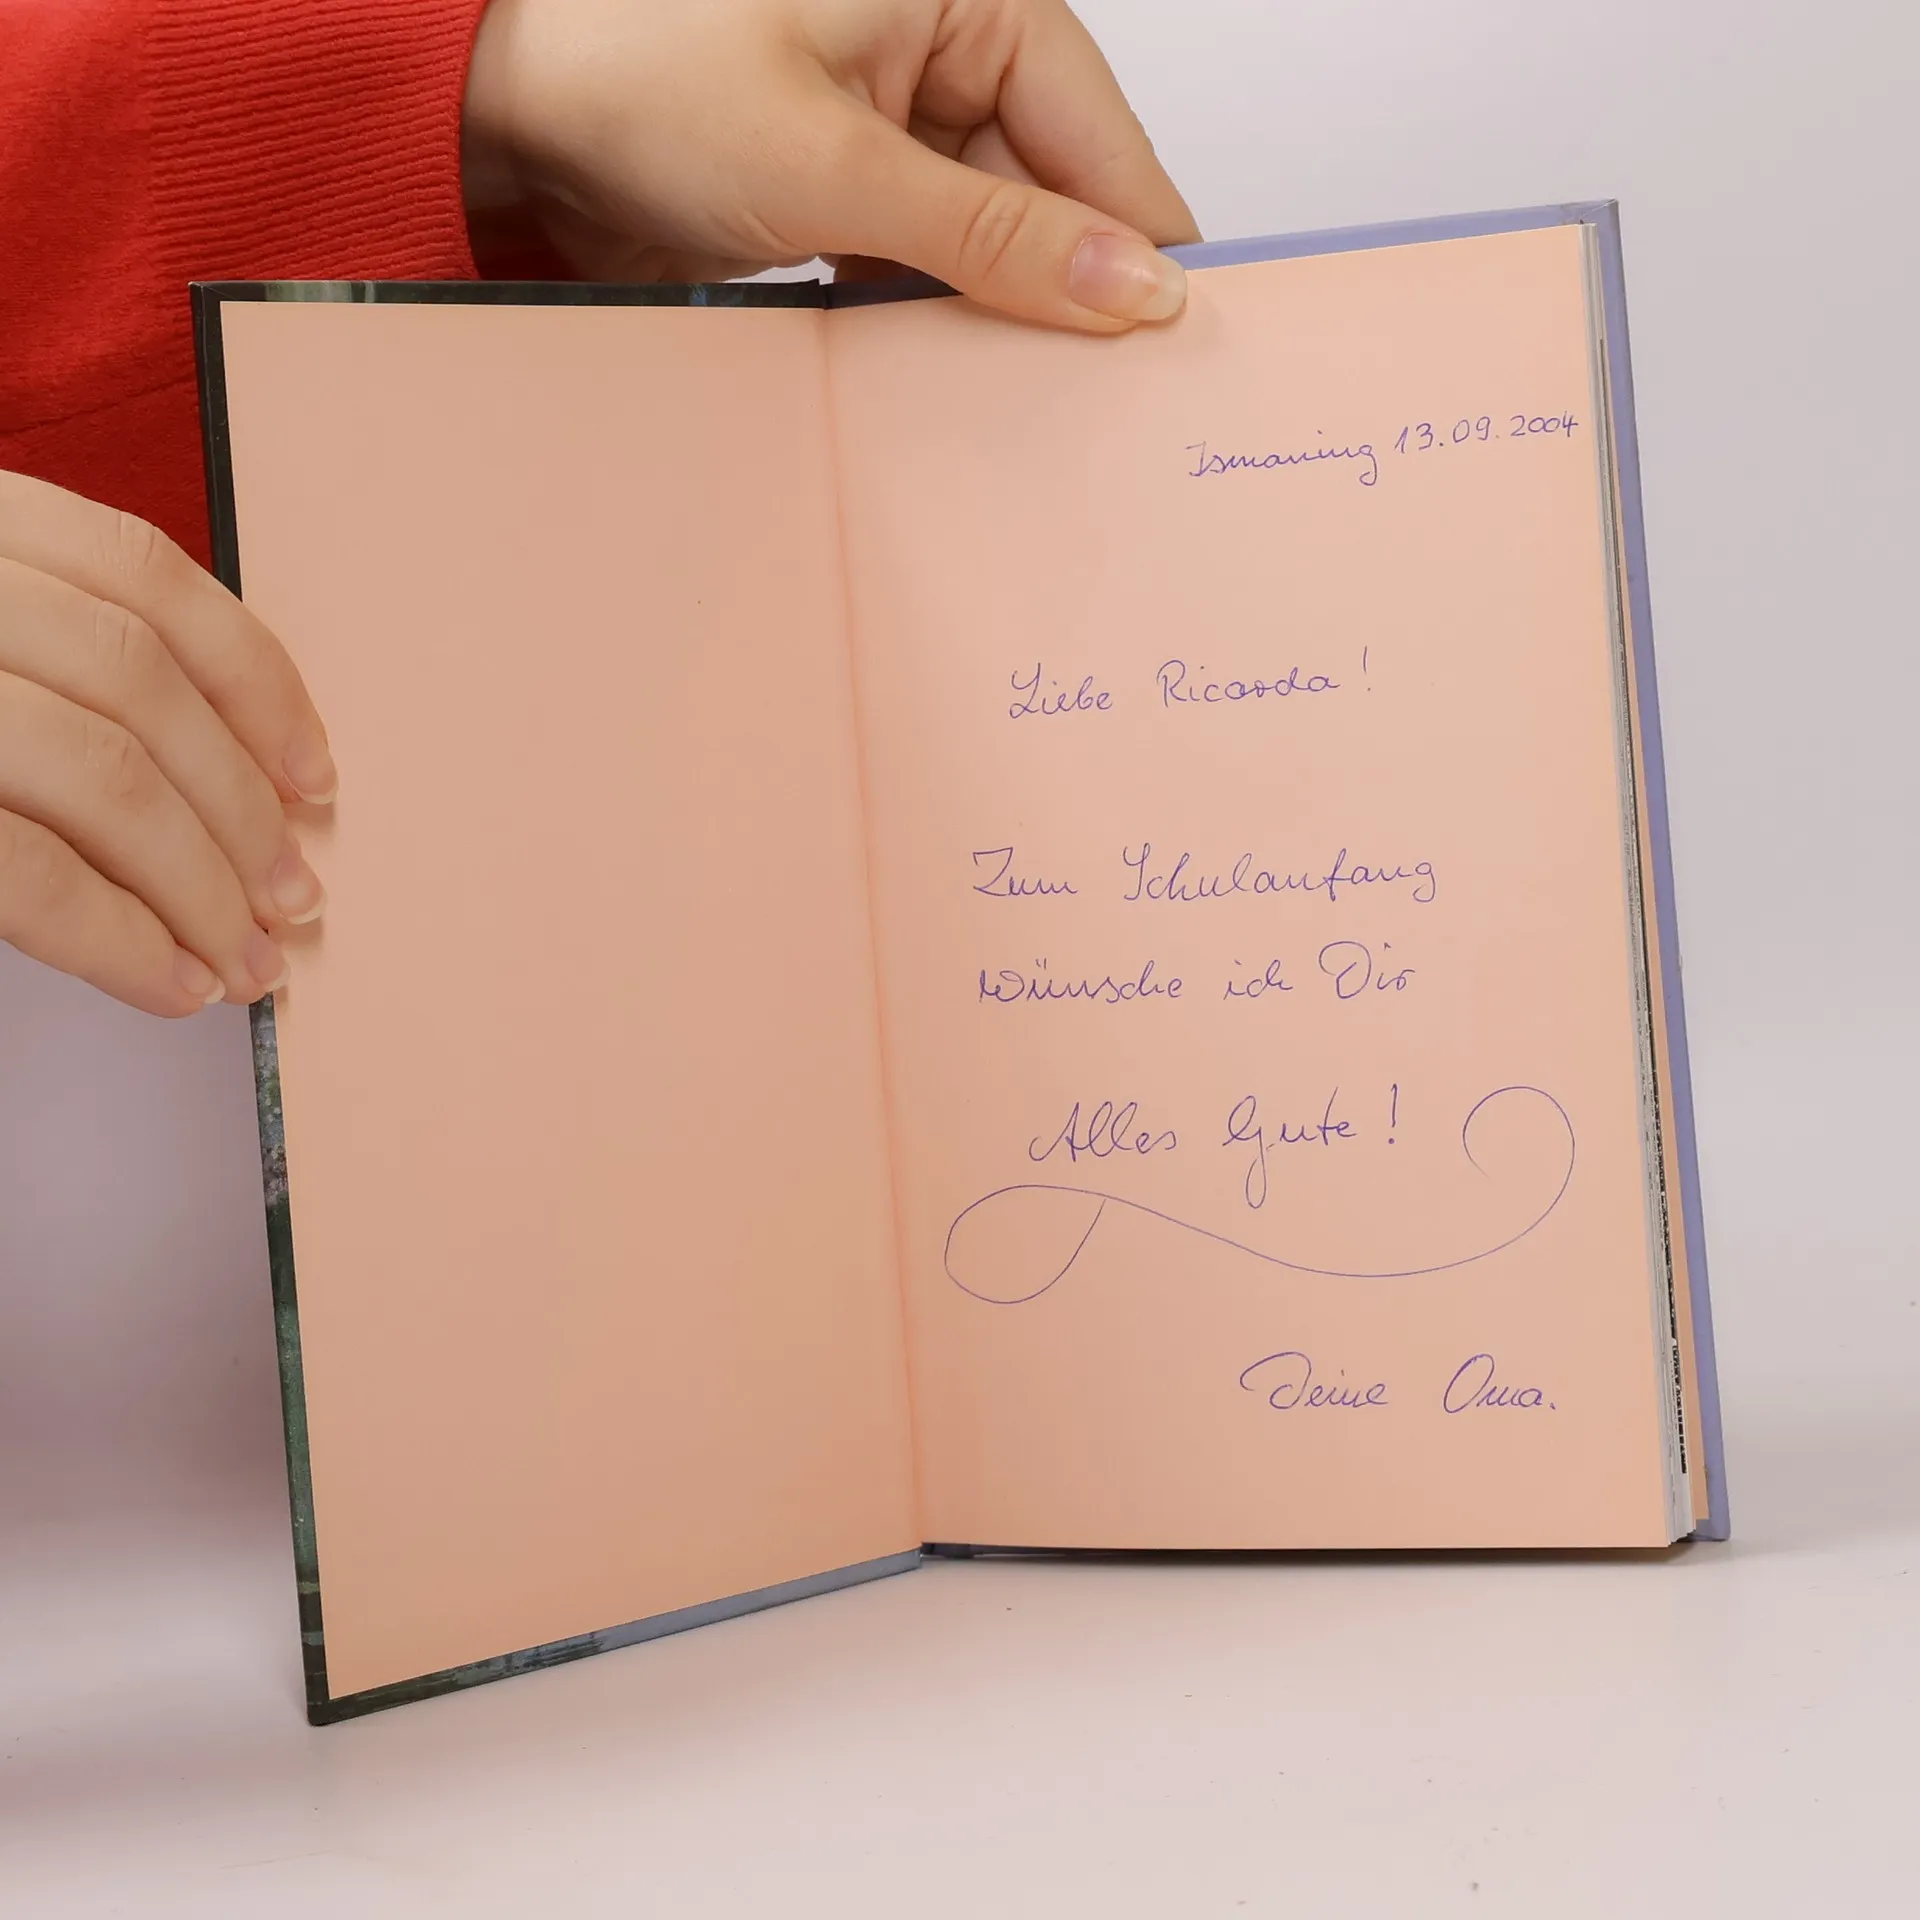 Ismaning 13.09.2004
Liebe Ricarda!
Zum Schulanfang
wünsche ich Dir
Alles Gute!
Deine Oma.